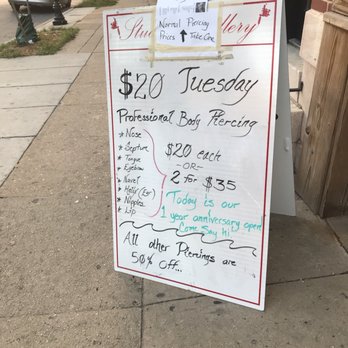 Normal Piercing
Prices ↑ Take One
$20 Tuesday
Professional Body Piercing
* Nose
* Septum
* Tongue
* Eyebrow
* Navel
* Helix (Ear)
* Nipples
* Lip
$20 each
-OR-
2 for $35
Today is our
1 year anniversary open
Come Say hi
All other Piercings are
50% Off...